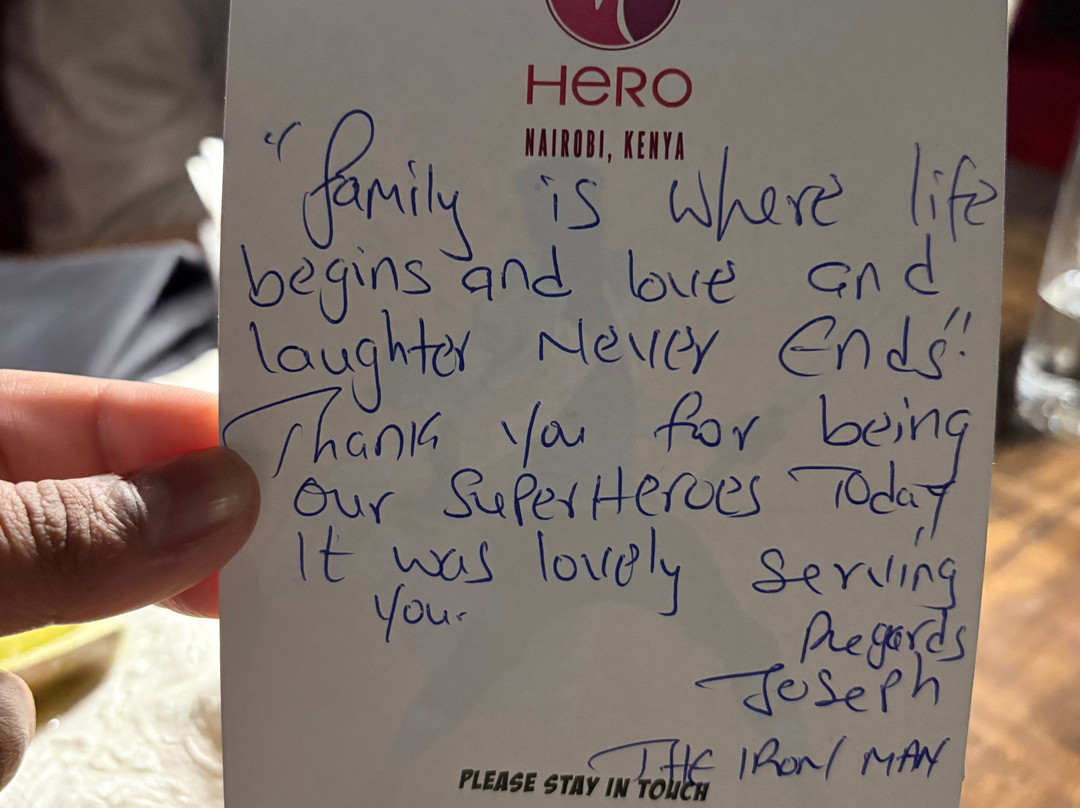 HERO
NAIROBI, KENYA
"family is where life
begins and love and
laughter Never Ends".
Thank you for being
our SuperHeroes Today
It was lovely serving
you.
Regards
Joseph
THE IRON MAN
PLEASE STAY IN TOUCH